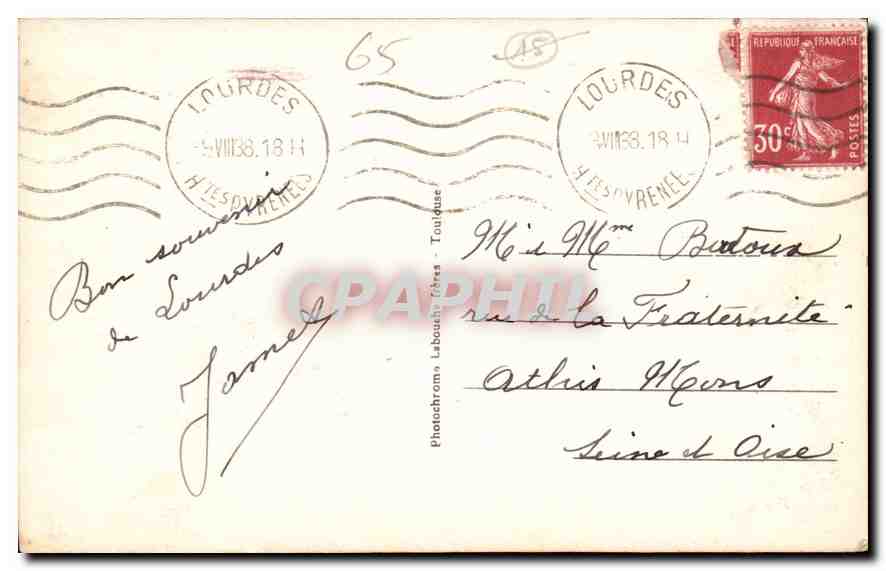 65
15
REPUBLIQUE FRANÇAISE
30c
POSTES
LOURDES
9 VIII 38. 18 H
Htes PYRENEES
LOURDES
9 VIII 38. 18 H
Htes PYRENEES
Bon souvenir
de Lourdes
Photochrome Labouche frères - Toulouse
CPAPHIL
Mr et Mme
rue de la Fraternité
Athis Mons
Seine et Oise